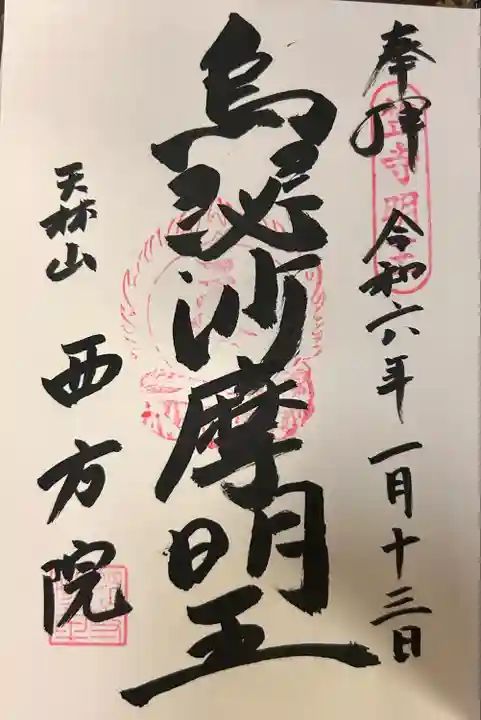 奉拝 令和六年一月十三日
烏瑟沙摩明王
天林山 西方院